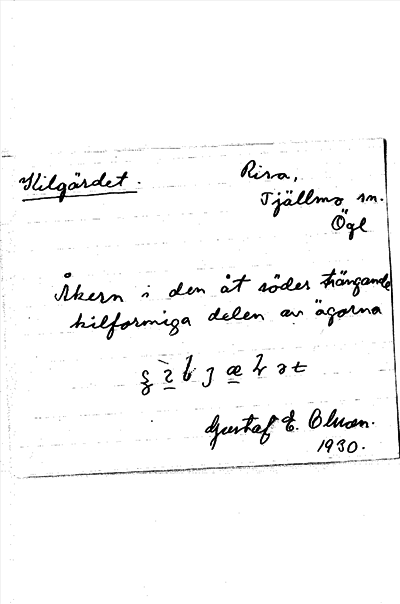 Kilgärdet.
Risa,
Tjällmo sn.
Ögl
Åkern i den åt söder trängande
kilformiga delen av ägorna
Gustaf E. Olson.
1930.